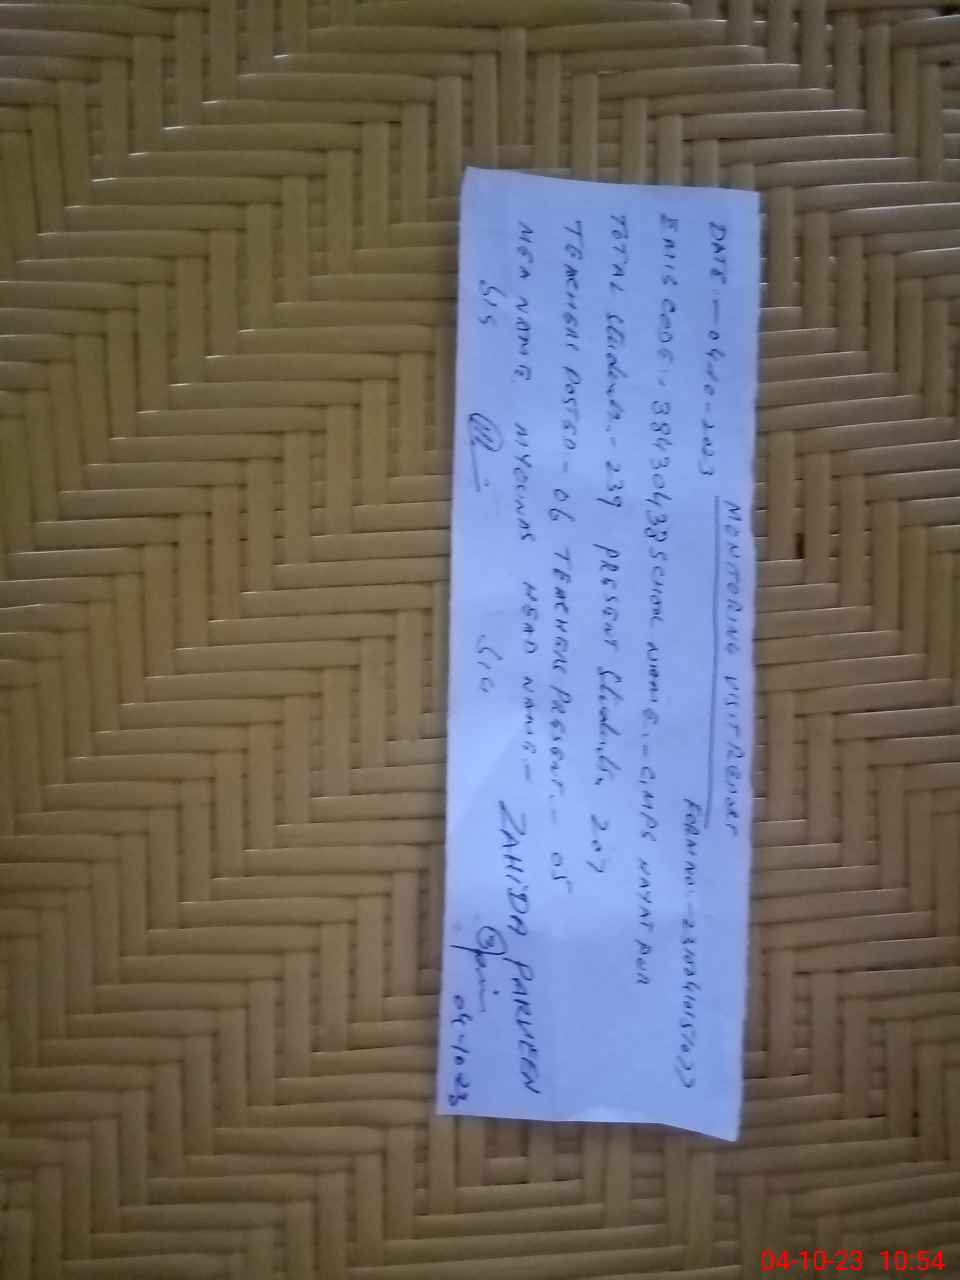 MONITORING VISIT REPORT
DATE:- 04-10-2023 FORM NO:-
EMIS CODE:- 38430438 SCHOOL NAME:- GMPS HAYAT PUR
TOTAL Students:- 239 PRESENT Students 207
TEACHERS POSTED - 06 TEACHERS PRESENT:- 05
MEA NAME. M YOUNAS HEAD NAME:- ZAHIDA PARVEEN
SIG SIG
04-10-23
04-10-23 10:54